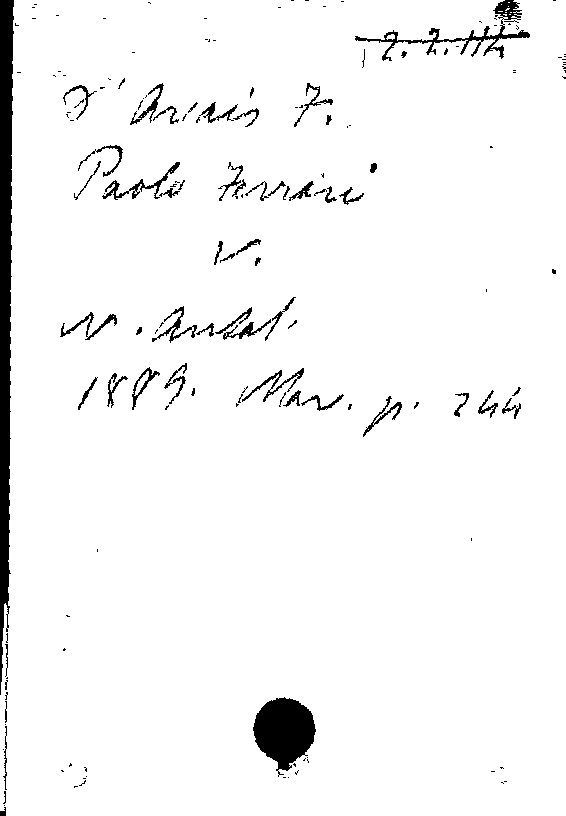 2.2.114
D'Arcais F.
Paolo Ferrari
V.
N. Antol.
1889. Mar. p. 244